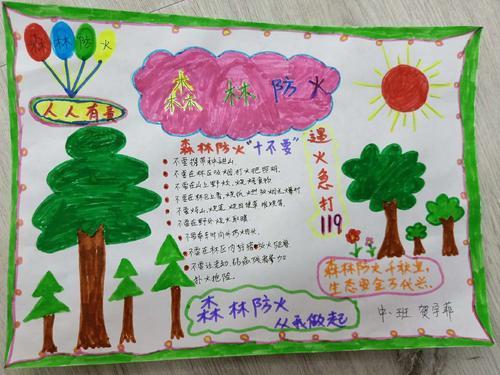 森林防火
人人有责
森林防火
森林防火"十不要"
不要携带火种进山
不要在林区吸烟打火把照明
不要在山上野炊、烧烤食物
不要在林区上香、烧纸、燃放烟花爆竹
不要炼山、烧荒
不要在野外烧火取暖
不要在林区内
不要让老幼弱病残者参加
扑火抢险
遇火急打119
森林防火千秋业,
生态安全万代兴.
森林防火
从我做起
中一班